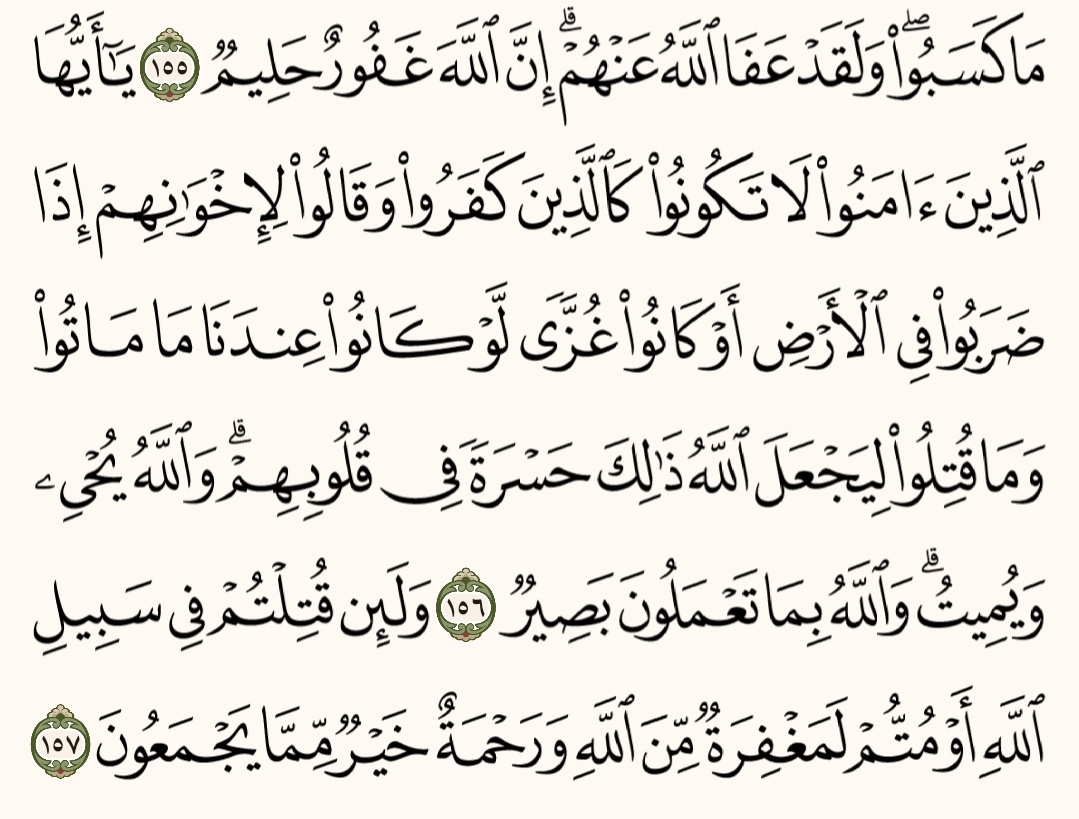 مَا كَسَبُوا۟ۖ وَلَقَدْ عَفَا ٱللَّهُ عَنْهُمْۗ إِنَّ ٱللَّهَ غَفُورٌ حَلِيمٌ ١٥٥ يَـٰٓأَيُّهَا
ٱلَّذِينَ ءَامَنُوا۟ لَا تَكُونُوا۟ كَٱلَّذِينَ كَفَرُوا۟ وَقَالُوا۟ لِإِخْوَٰنِهِمْ إِذَا
ضَرَبُوا۟ فِى ٱلْأَرْضِ أَوْ كَانُوا۟ غُزًّى لَّوْ كَانُوا۟ عِندَنَا مَا مَاتُوا۟
وَمَا قُتِلُوا۟ لِيَجْعَلَ ٱللَّهُ ذَٰلِكَ حَسْرَةً فِى قُلُوبِهِمْۗ وَٱللَّهُ يُحْىِۦ
وَيُمِيتُۗ وَٱللَّهُ بِمَا تَعْمَلُونَ بَصِيرٌ ١٥٦ وَلَئِن قُتِلْتُمْ فِى سَبِيلِ
ٱللَّهِ أَوْ مُتُّمْ لَمَغْفِرَةٌ مِّنَ ٱللَّهِ وَرَحْمَةٌ خَيْرٌ مِّمَّا يَجْمَعُونَ ١٥٧